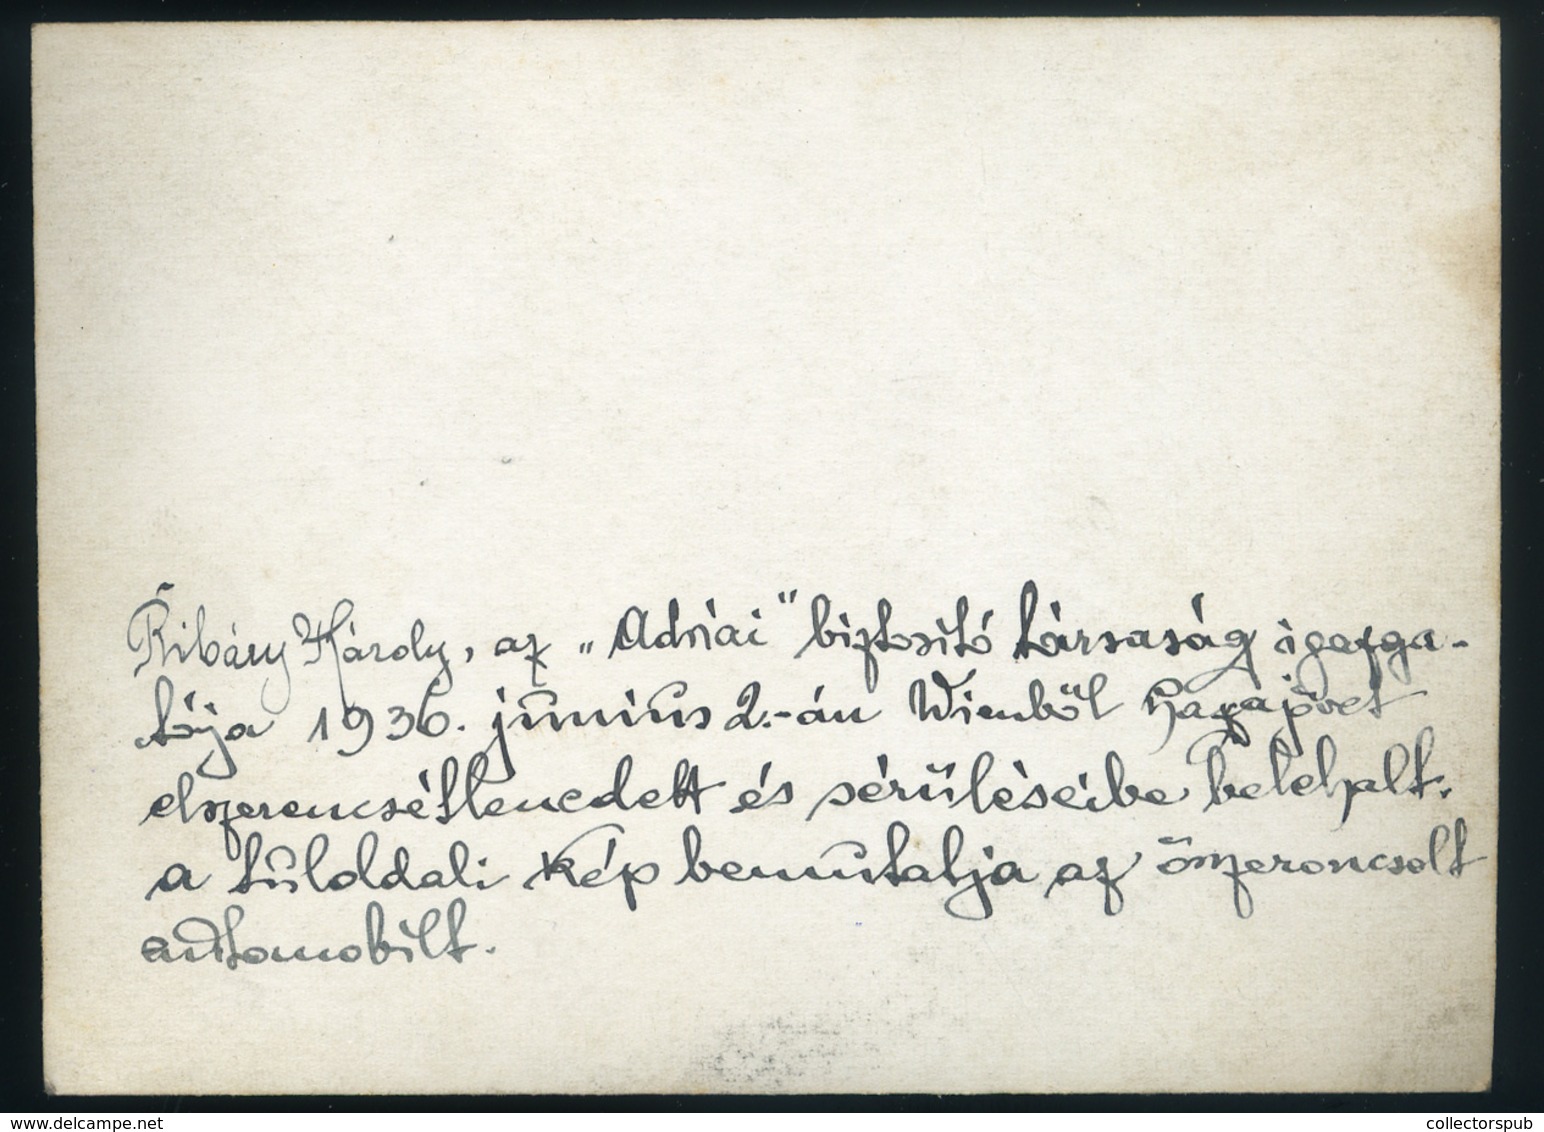 Ribáry Károly, az „Adriai" biztositó társaság igazga-
tója 1936. június 2.-án Wienből hazajövet
elszerencsétlenedett és sérüléseibe belehalt.
a túloldali kép bemutatja az összeroncsolt
automobilt.
www.delcampe.net
collectorspub